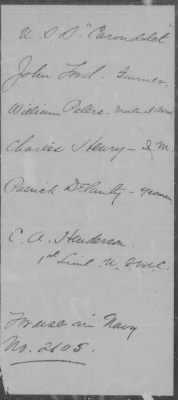 U. S. S. "Carondelet"
John Ford - Gunner
William Peters -
Charles Henry - Q. M.
Patrick Delanty - Yeoman
C. A. Henderson.
1st Lieut U. S. M. C.
For use in Navy
No. 2605.